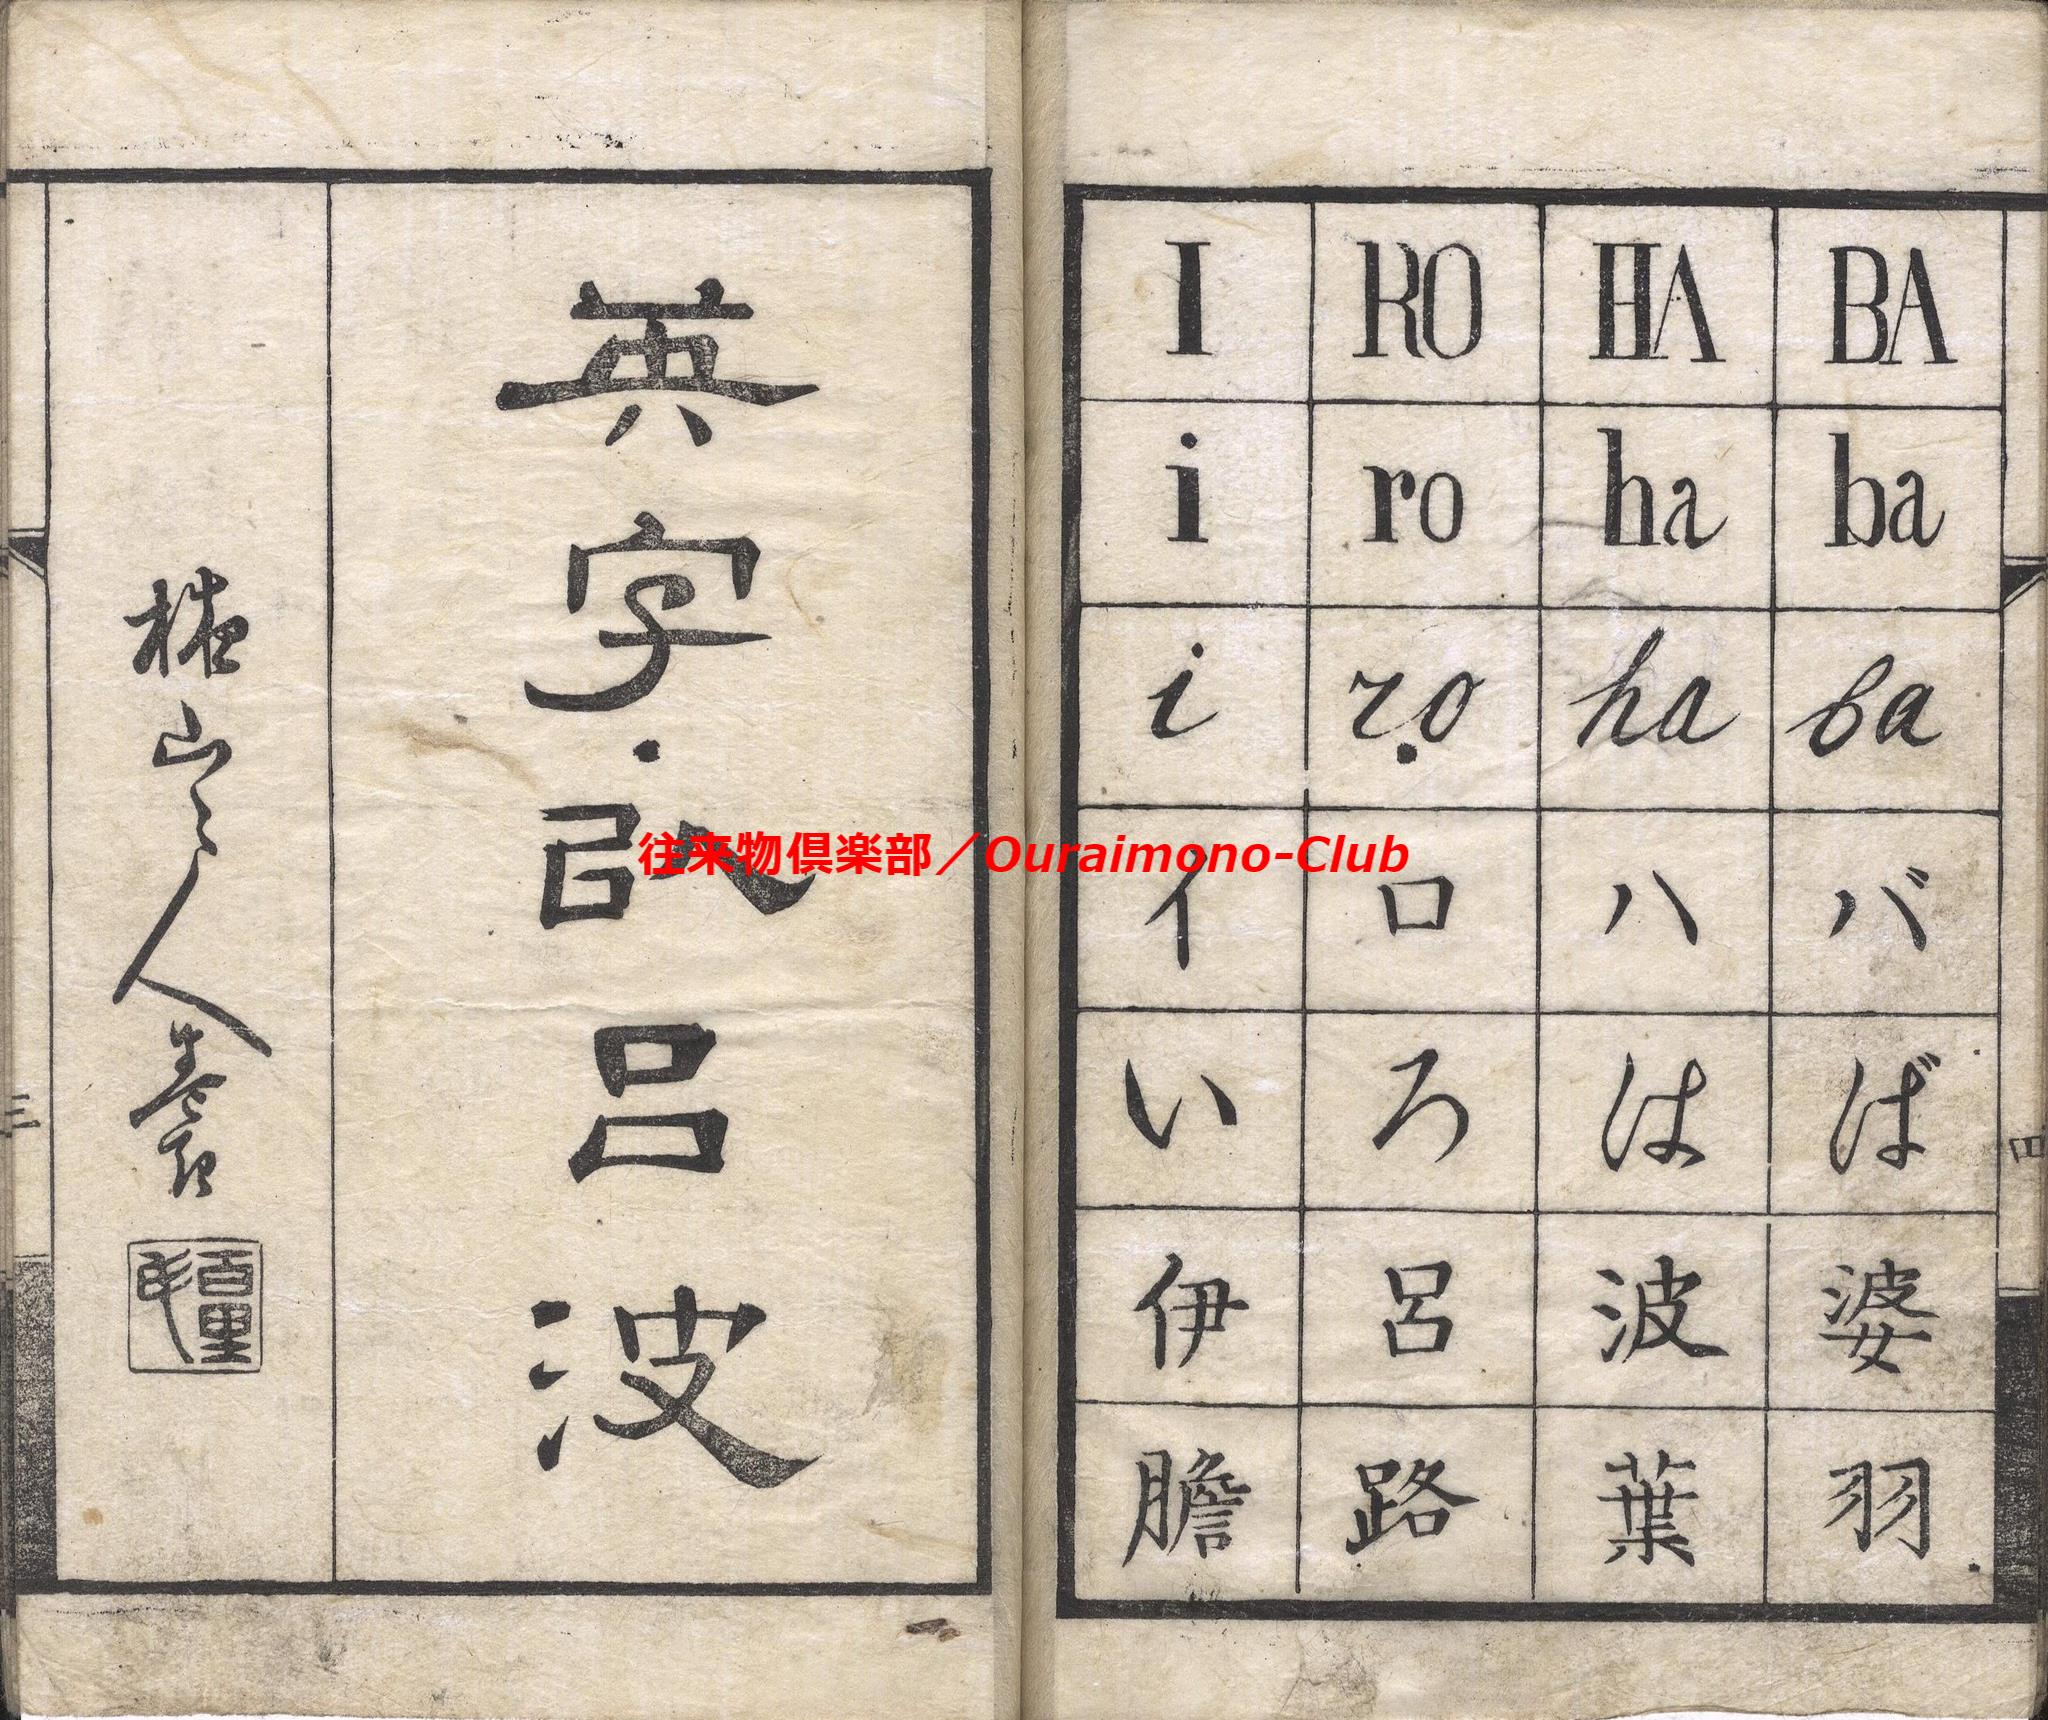 英字以呂波
山人書
百里
I RO HA BA
i ro ha ba
i ro ha ba
イ ロ ハ バ
い ろ は ば
伊 呂 波 婆
膽 路 葉 羽
三
四
往来物倶楽部／Ouraimono-Club